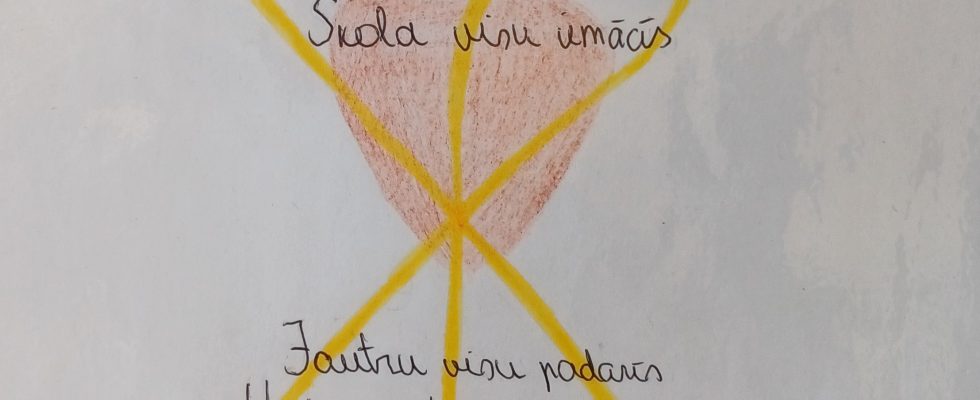 Skola visu iemācīs
Jautru visu padarīs